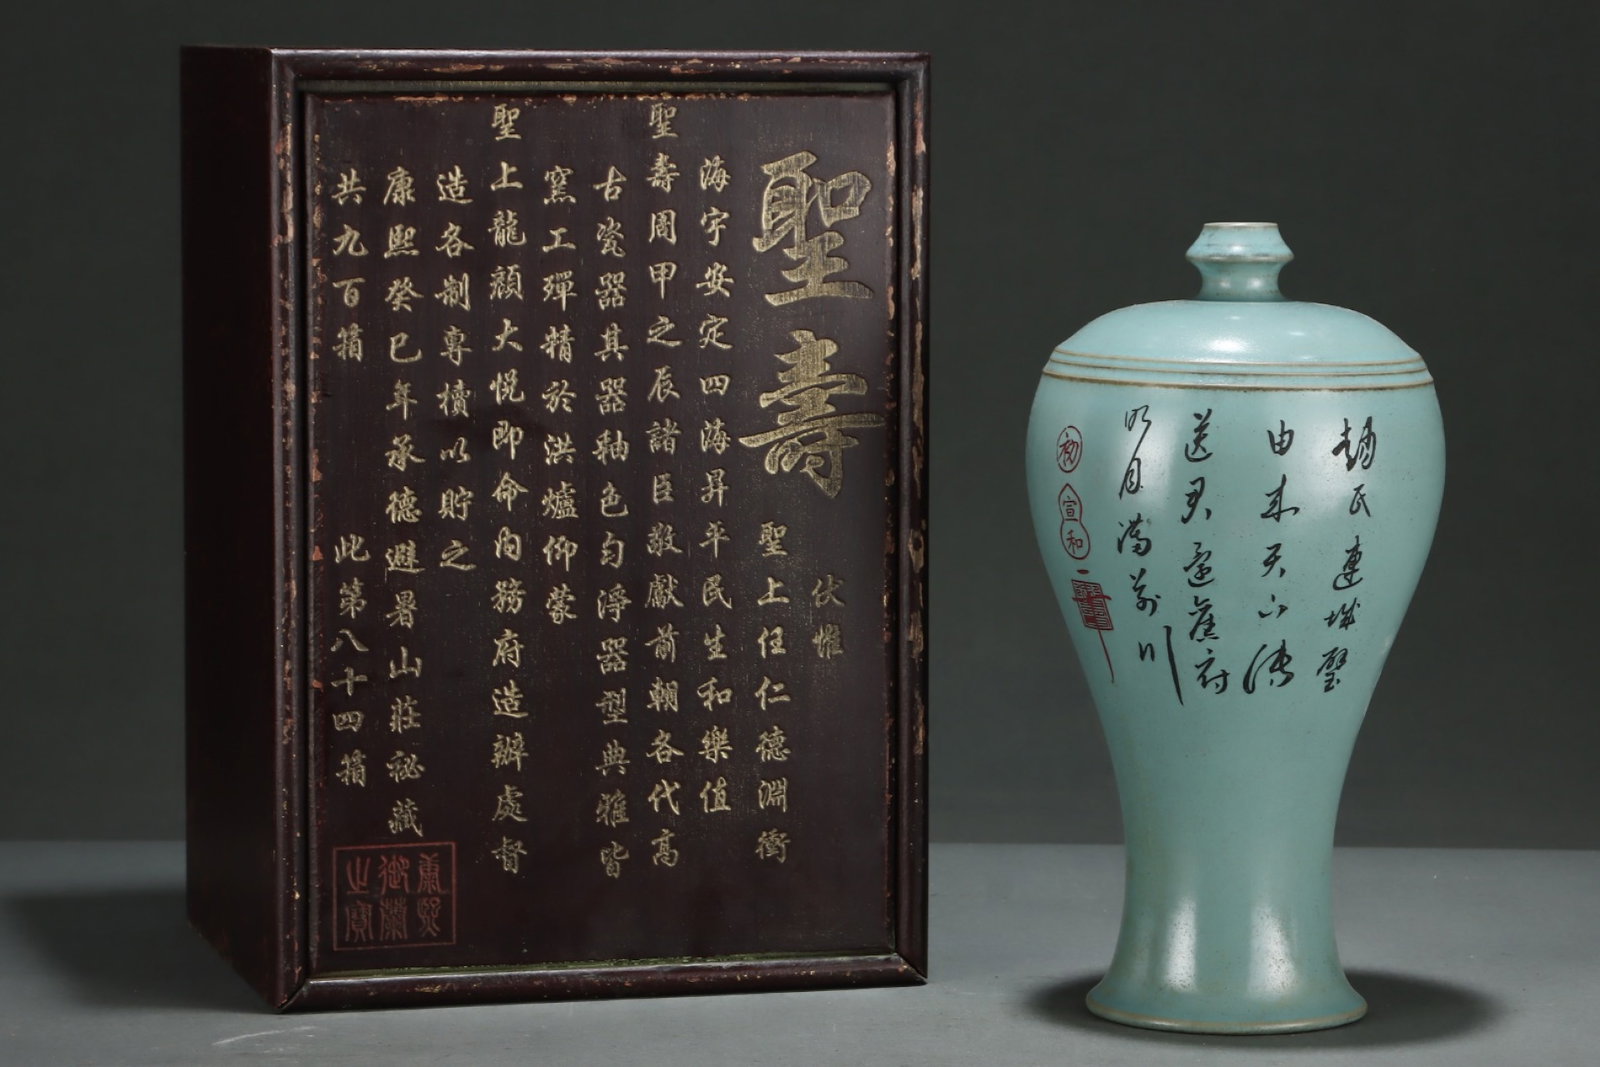 聖壽
伏惟
聖上任仁德淵衝
海宇安定四海昇平民生和樂值
聖壽周甲之辰諸臣敬獻前朝各代高
古瓷器其器釉色勻淨器型典雅皆
窯工殫精於洪爐仰蒙
聖上龍顏大悅即命內務府造辦處督
造各制專櫝以貯之
康熙癸巳年承德避暑山莊秘藏
共九百箱 此第八十四箱
康熙
御覽
之寶
趙氏連城璧
由来天下傳
送君還舊府
明月滿前川
宣和